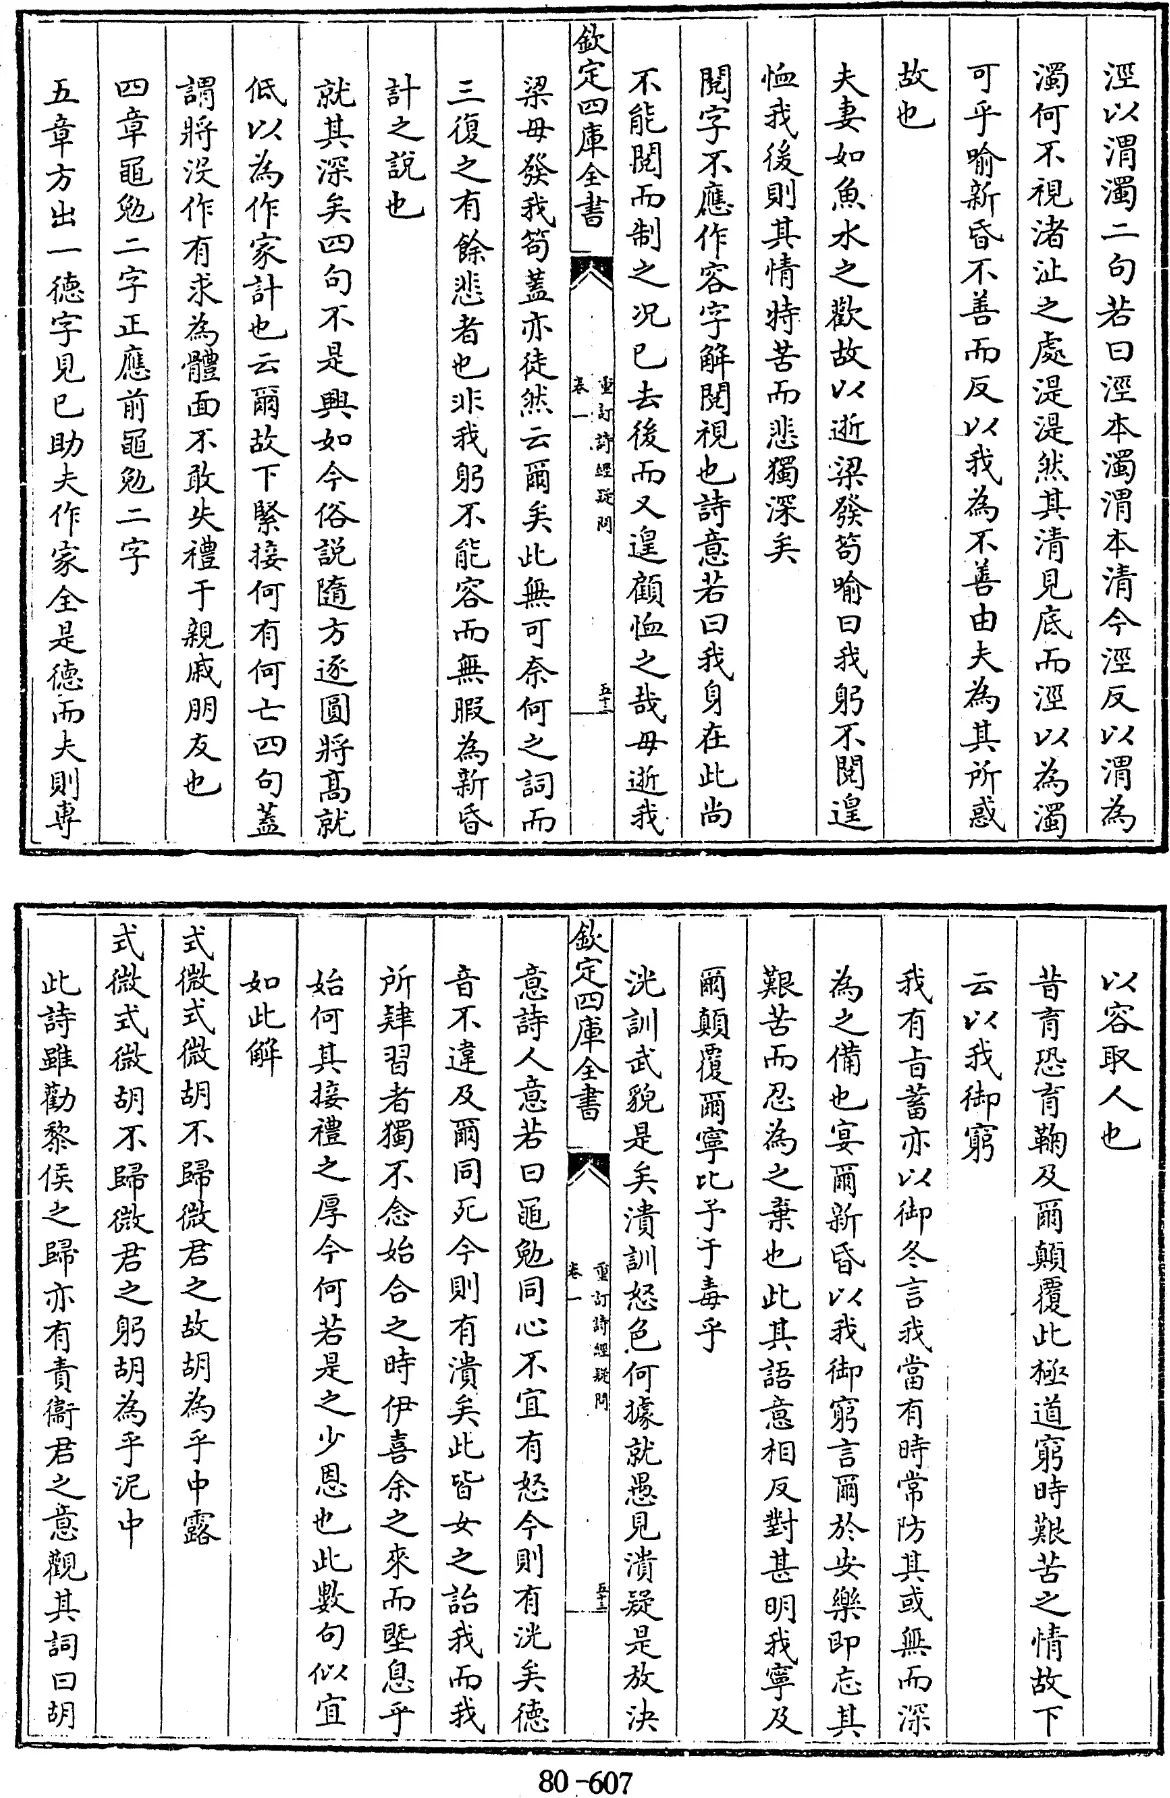 涇以渭濁二句若曰涇本濁渭本清今涇反以渭為
濁何不視渚沚之處湜湜然其清見底而涇以為濁
可乎喻新昏不善而反以我為不善由夫為其所惑
故也
夫妻如魚水之歡故以逝梁發笱喻曰我躬不閱遑
恤我後則其情特苦而悲獨深矣
閱字不應作容字解閱視也詩意若曰我身在此尚
不能閱而制之况已去後而又遑顧恤之哉毋逝我
欽定四庫全書
重訂詩經疑問
卷一
五十二
梁毋發我笱蓋亦徒然云爾矣此無可奈何之詞而
三復之有餘悲者也非我躬不能容而無暇為新昏
計之說也
就其深矣四句不是興如今俗說隨方逐圓將髙就
低以為作家計也云爾故下緊接何有何亡四句蓋
謂將沒作有求為體面不敢失禮于親戚朋友也
四章黽勉二字正應前黽勉二字
五章方出一德字見已助夫作家全是德而夫則專
以容取人也
昔育恐育鞠及爾顛覆此極道窮時艱苦之情故下
云以我御窮
我有㫖蓄亦以御冬言我當有時常防其或無而深
為之備也宴爾新昏以我御窮言爾於安樂即忘其
艱苦而忍為之棄也此其語意相反對甚明我寧及
爾顛覆爾寧比予于毒乎
洸訓武貌是矣潰訓怒色何據就愚見潰疑是放決
欽定四庫全書
重訂詩經疑問
卷一
五十三
意詩人意若曰黽勉同心不宜有怒今則有洸矣德
音不違及爾同死今則有潰矣此皆女之詒我而我
所肄習者獨不念始合之時伊喜余之來而塈息乎
始何其接禮之厚今何若是之少恩也此數句似宜
如此解
式微式微胡不歸微君之故胡為乎中露
式微式微胡不歸微君之躬胡為乎泥中
此詩雖勸黎侯之歸亦有責衞君之意觀其詞曰胡
80-607